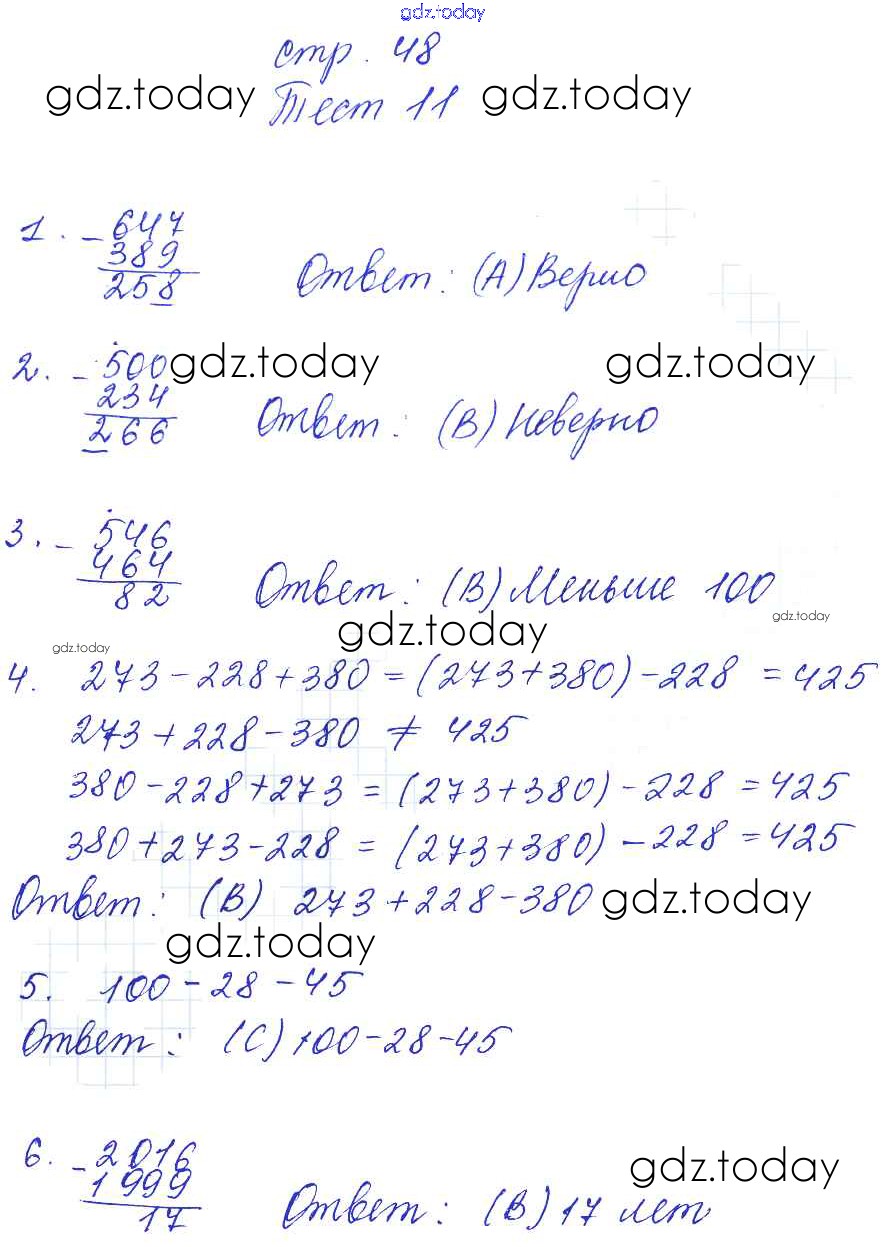 gdz.today
стр. 48
gdz.today Тест 11 gdz.today
1. - 647
389
258 Ответ: (А) Верно
2. - 500 gdz.today gdz.today
234
266 Ответ: (В) Неверно
3. - 546
464
82 Ответ: (В) Меньше 100
gdz.today gdz.today gdz.today
4. 273 - 228 + 380 = (273 + 380) - 228 = 425
273 + 228 - 380 ≠ 425
380 - 228 + 273 = (273 + 380) - 228 = 425
380 + 273 - 228 = (273 + 380) - 228 = 425
Ответ: (В) 273 + 228 - 380 gdz.today
gdz.today
5. 100 - 28 - 45
Ответ: (С) 100 - 28 - 45
6. - 2016 gdz.today
1999
17 Ответ: (В) 17 лет